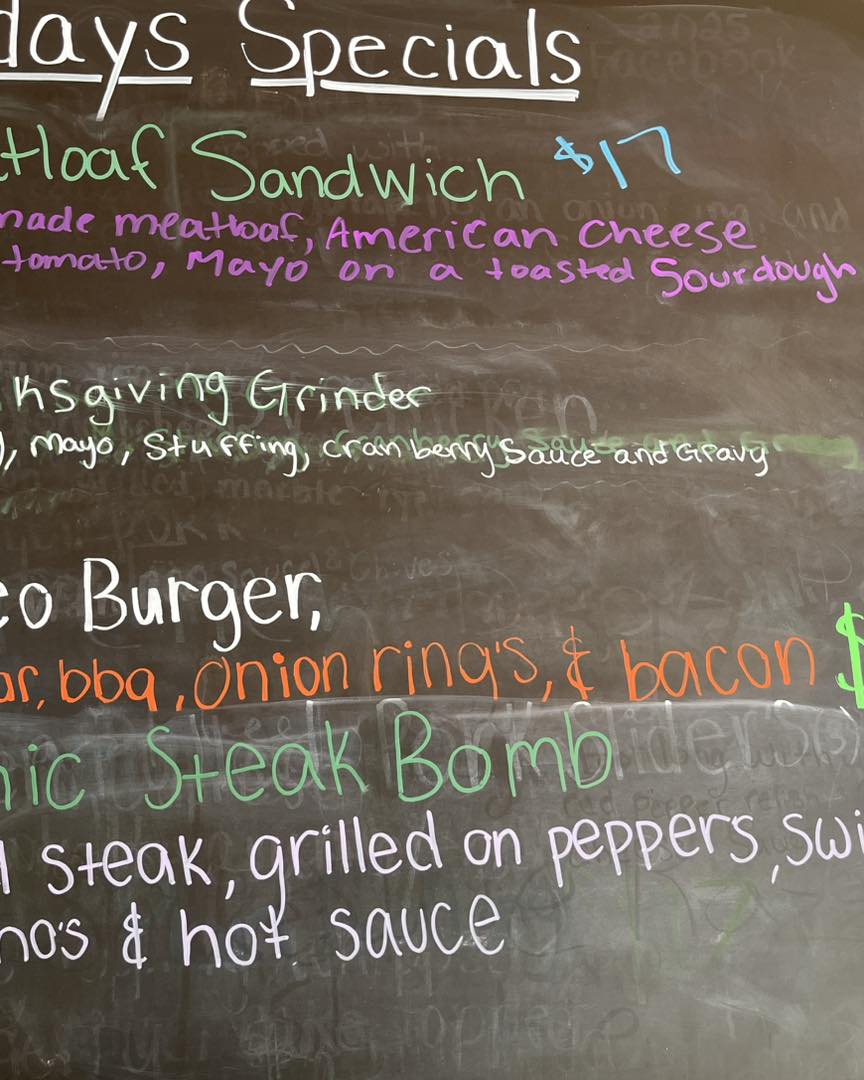 days Specials
tloaf Sandwich $17
made meatloaf, American cheese
tomato, Mayo on a toasted Sourdough
ksgiving Grinder
), Mayo, Stuffing, cranberry Sauce and Gravy
eo Burger,
ar, bbq, onion ring's, & bacon $
nic Steak Bomb
d steak, grilled on peppers, swi
no's & hot sauce